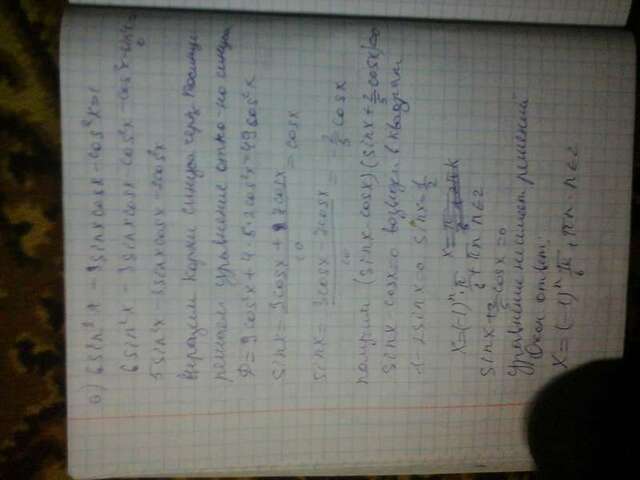 6sin²x - 3sinxcosx - cos²x = 1
6sin²x - 3sinxcosx - cos²x - cos²x - sin²x = 0
5sin²x - 3sinxcosx - 2cos²x
Выразим корни синуса через косинус
решаем уравнение относ-но синуса
D = 9cos²x + 4·5·2cos²x = 49cos²x
sinx = 3cosx + 7cosx / 10 = cosx
sinx = 3cosx - 7cosx / 10 = -2/5 cosx
получим (sinx - cosx)(sinx + 2/5 cosx) = 0
sinx - cosx = 0 возведем в квадрат
1 - 2sinx = 0 sinx = 1/2
x = (-1)ⁿ · π/6 + πn n∈Z
sinx + 2/5 cosx = 0
Уравнение не имеет решений
ответ:
x = (-1)ⁿ π/6 + πn. n∈Z